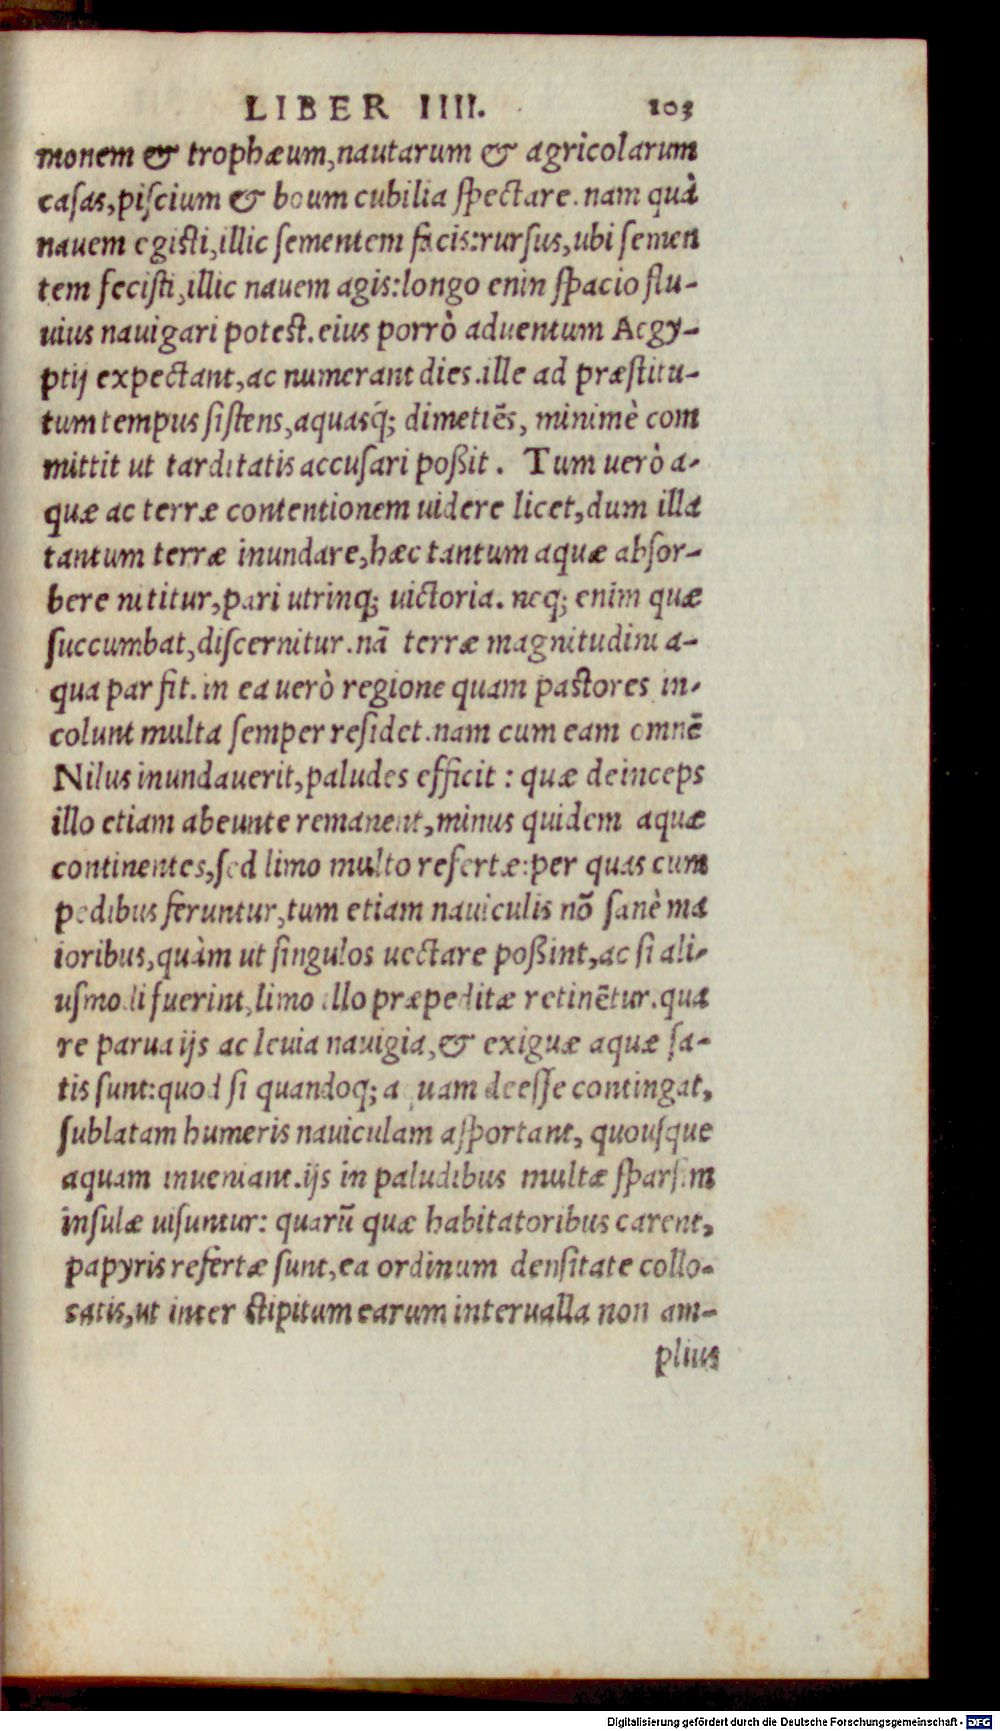 LIBER IIII. 103
monem & trophæum,nautarum & agricolarum
casas,piscium & boum cubilia spectare.nam quà
nauem egisti,illic sementem facis:rursus,ubi semen
tem fecisti,illic nauem agis:longo enin spacio flu-
uius nauigari potest.eius porrò aduentum Aegy-
ptij expectant,ac numerant dies.ille ad præstitu-
tum tempus sistens,aquasq́; dimetiēs, minimè com
mittit ut tarditatis accusari poßit. Tum uerò a-
quæ ac terræ contentionem uidere licet,dum illa
tantum terræ inundare,hæc tantum aquæ absor-
bere nititur,pari utrinq; uictoria. neq; enim quæ
succumbat,discernitur.nā terræ magnitudini a-
qua par fit.in ea uerò regione quam pastores in-
colunt multa semper residet.nam cum eam omnē
Nilus inundauerit,paludes efficit : quæ deinceps
illo etiam abeunte remanent,minus quidem aquæ
continentes,sed limo multo refertæ:per quas cum
pedibus feruntur,tum etiam nauiculis nō sanè ma
ioribus,quàm ut singulos uectare poßint,ac si ali-
usmodi fuerint,limo illo præpeditæ retinētur.qua
re parua ijs ac leuia nauigia,& exiguæ aquæ sa-
tis sunt:quod si quandoq; aquam deesse contingat,
sublatam humeris nauiculam asportant, quousque
aquam inueniant.ijs in paludibus multæ sparsim
insulæ uisuntur: quarū quæ habitatoribus carent,
papyris refertæ sunt,ea ordinum densitate collo-
catis,ut inter stipitum earum interualla non am-
plius
Digitalisierung gefördert durch die Deutsche Forschungsgemeinschaft - DFG